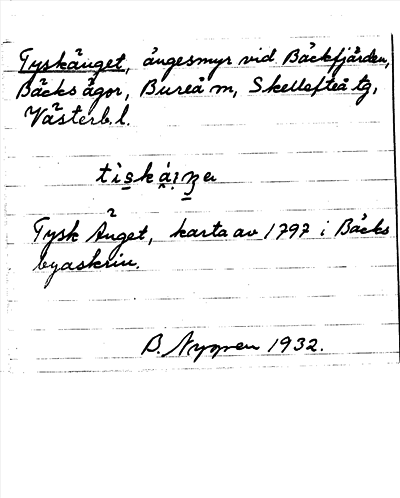 Tyskänget, ängesmyr vid Bäckfjärden,
Bäcks ägor, Bureå m, Skellefteå tg,
Västerb. l.
Tysk Änget, karta av 1797 i Bäcks
byaskrin.
B. Nygren 1932.